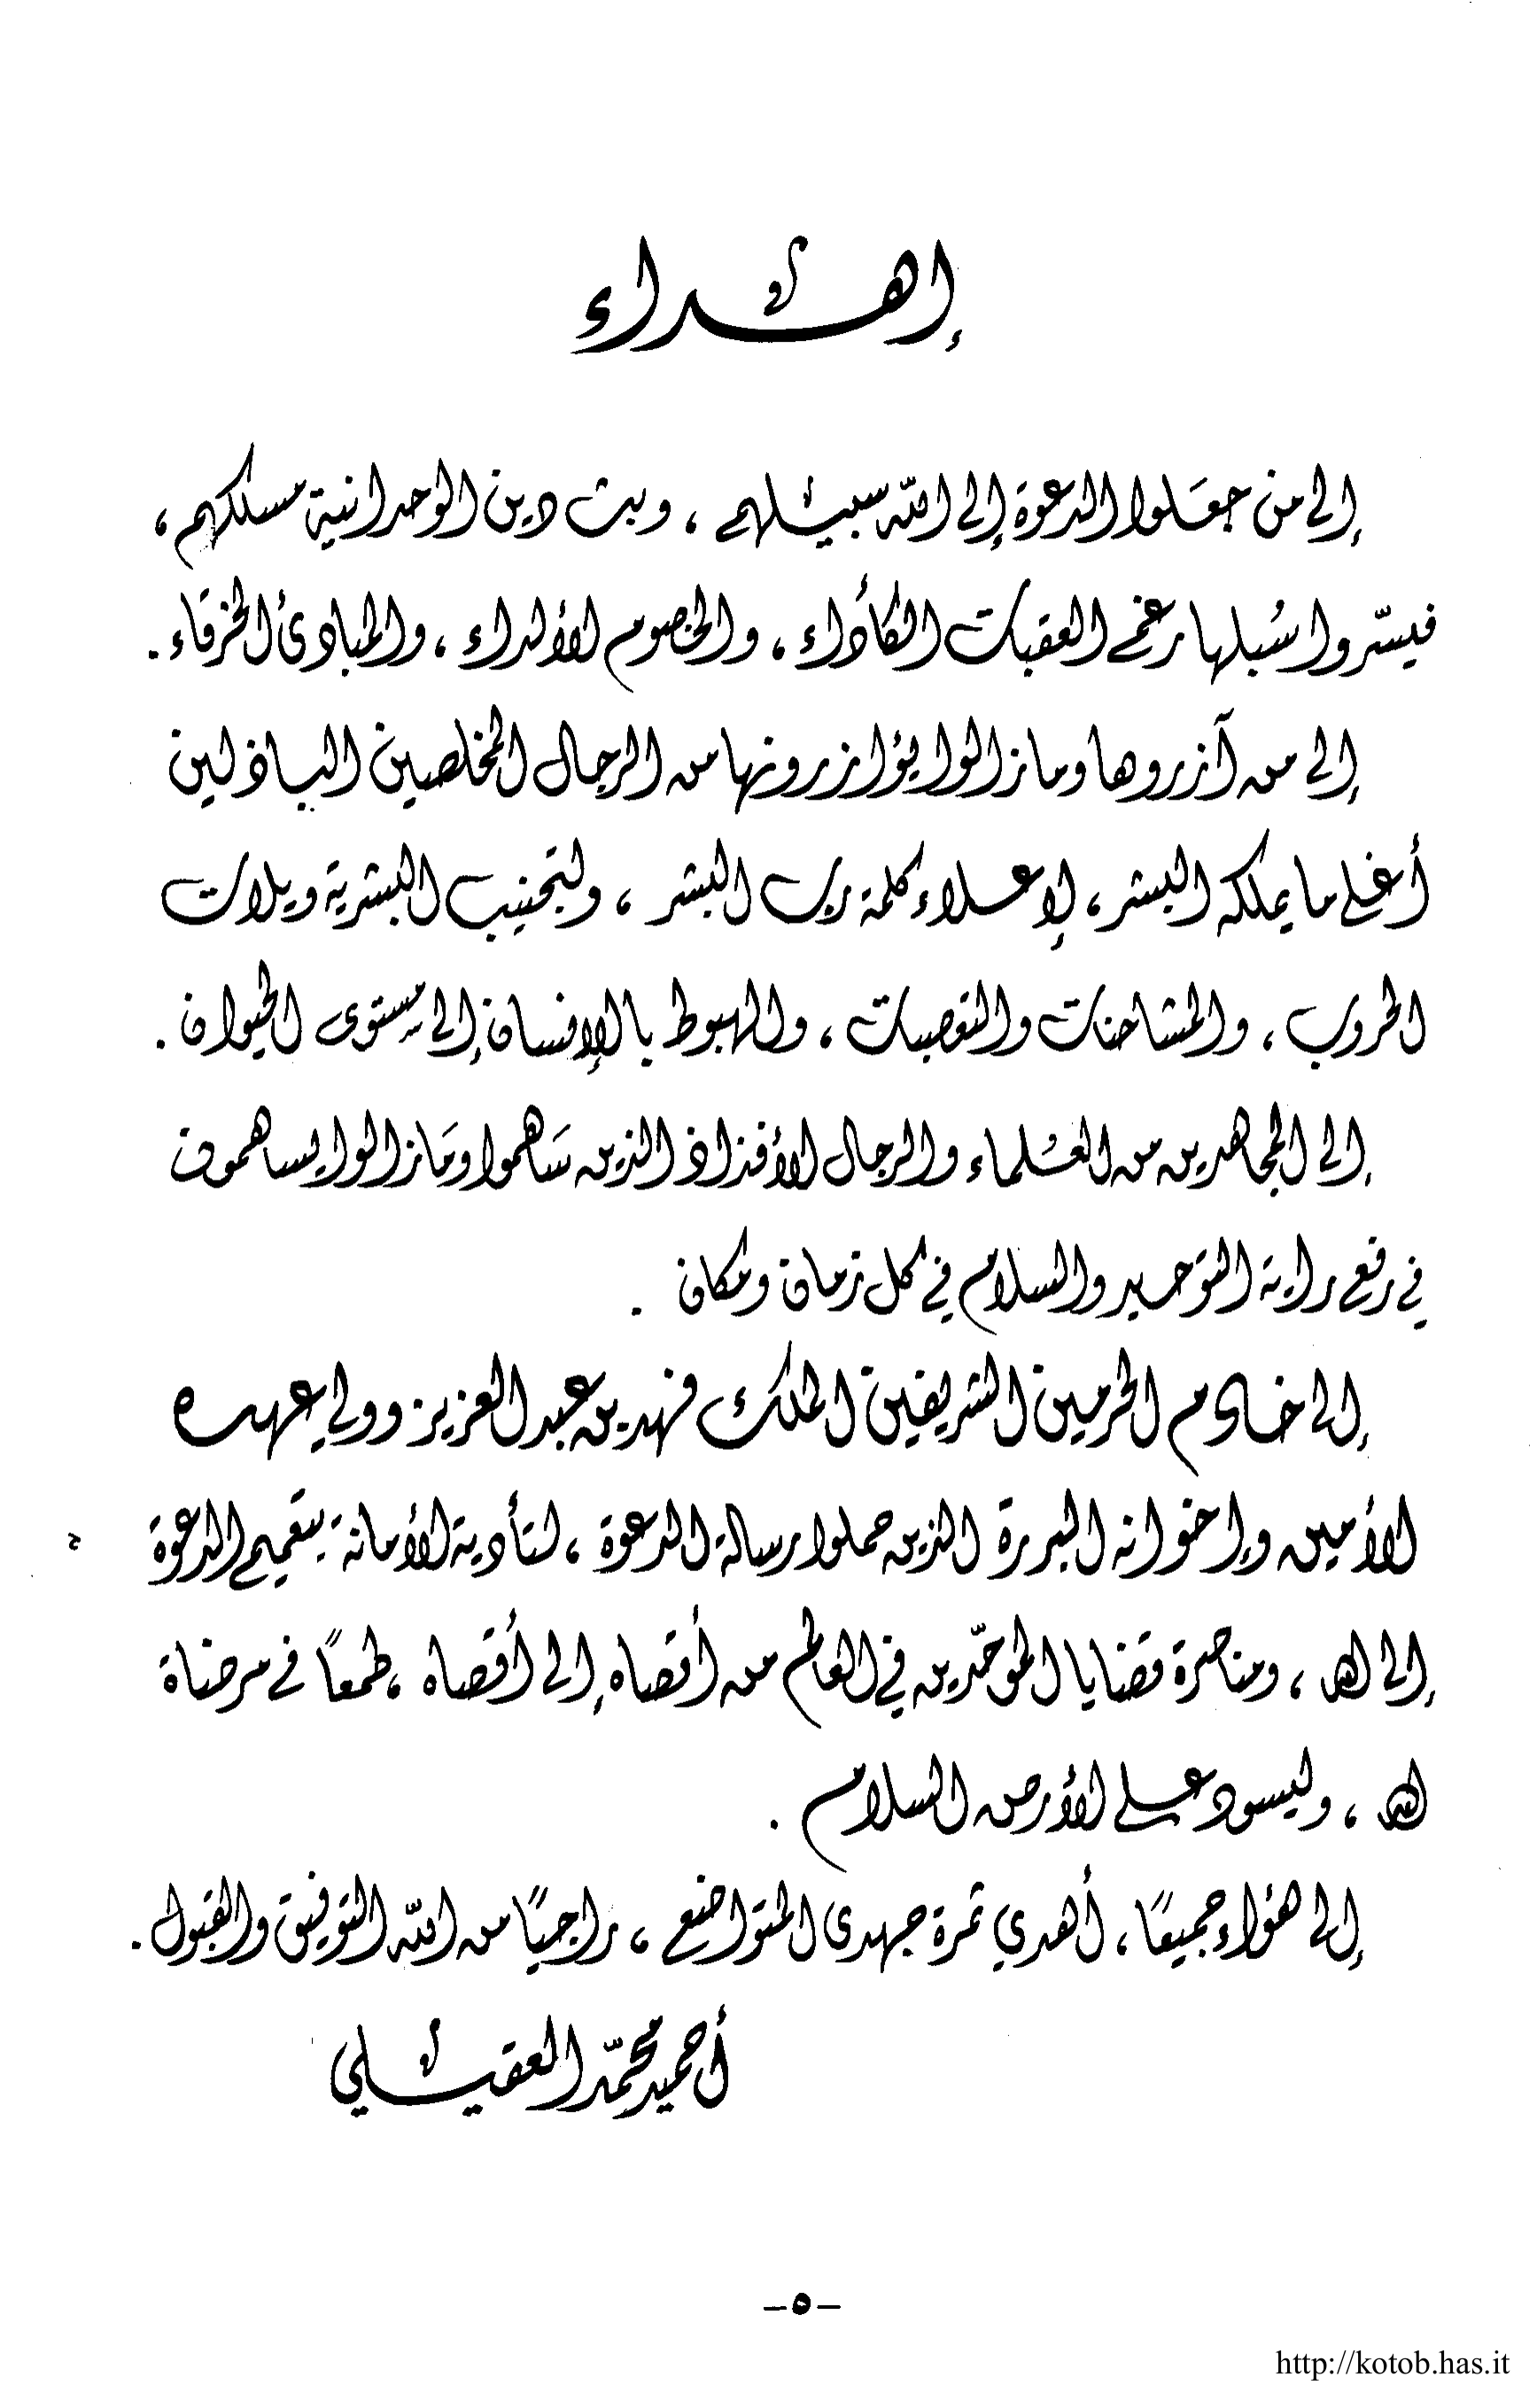 إهداء
إلى من جعَلوا الدعوة إلى الله سبيلهم ، وبث دين الوحدانية مسلكهم ،
فيسّروا سُبلها رغم العقبات الكأداء ، والخصوم الألداء ، والمبادئ الخرقاء .
إلى من آزروها وما زالوا يؤازرونها من الرجال المخلصين الباذلين
أغلى ما يملكه البشر ، لإعلاء كلمة رب البشر ، ولتجنيب البشرية ويلات
الحروب ، والمشاحنات والتعصبات ، والهبوط بالإنسان إلى مستوى الحيوان .
إلى المجاهدين من العلماء والرجال الأفذاذ الذين سَاهموا ومَازالوا يساهمون
في رفع راية التوحيد والسلام في كل زمان ومكان .
إلى خادم الحرمين الشريفين الملك فهد بن عبد العزيز وولي عهده
الأمين وإخوانه البررة الذين حملوا رسالة الدعوة ، لتأدية الأمانة بتعميم الدعوة
إلى الله ، ومناصرة قضايا الموحّدين في العالم من أقصاه إلى أقصاه ، طمعًا في مرضاة
الله ، وليسود على الأرض السلام .
إلى هؤلاء جميعًا ، أهدي ثمرة جهدى المتواضع ، راجيًا من الله التوفيق والقبول .
أحمد محمّد العقيلي
-٥-
http://kotob.has.it